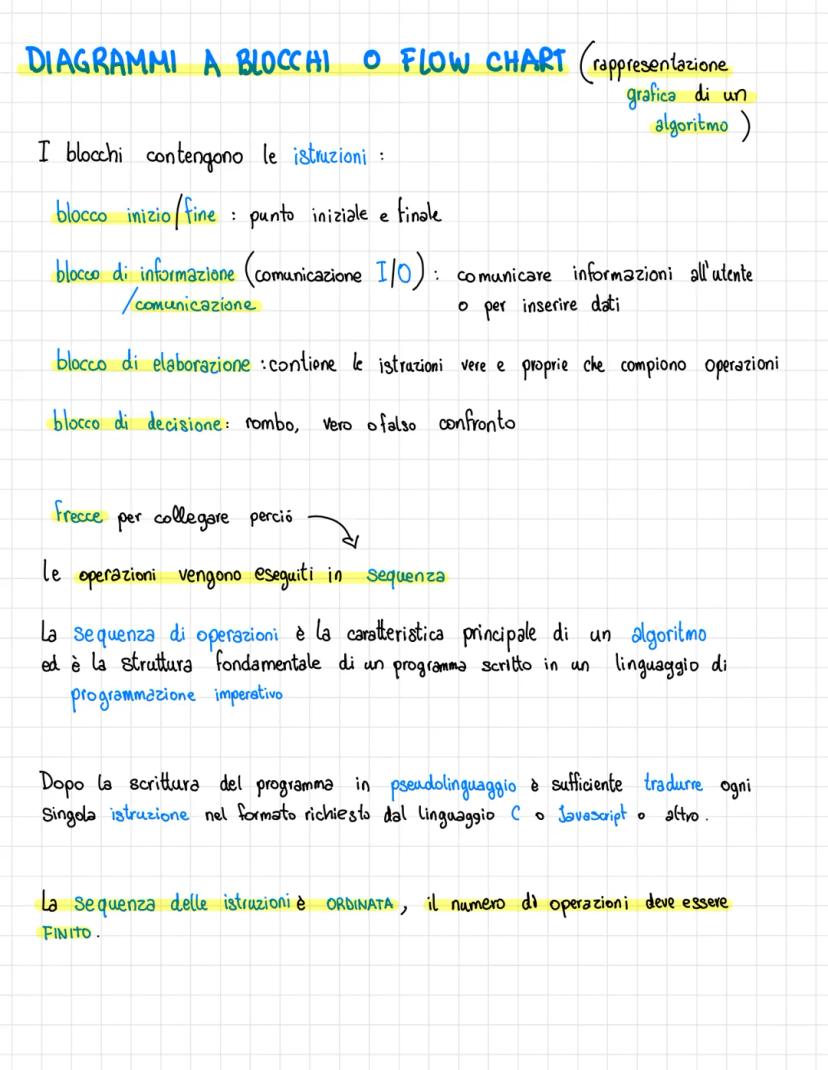 DIAGRAMMI A BLOCCHI O FLOW CHART (rappresentazione
grafica di un
algoritmo)
I blocchi contengono le istruzioni :
blocco inizio/fine : punto iniziale e finale
blocco di informazione (comunicazione I/O) : comunicare informazioni all'utente
/comunicazione o per inserire dati
blocco di elaborazione : contiene le istruzioni vere e proprie che compiono operazioni
blocco di decisione : rombo, vero o falso confronto
frecce per collegare perció
le operazioni vengono eseguiti in sequenza
La sequenza di operazioni è la caratteristica principale di un algoritmo
ed è la struttura fondamentale di un programma scritto in un linguaggio di
programmazione imperativo
Dopo la scrittura del programma in pseudolinguaggio è sufficiente tradurre ogni
singola istruzione nel formato richiesto dal linguaggio C o Javascript o altro.
La sequenza delle istruzioni è ORDINATA, il numero di operazioni deve essere
FINITO.